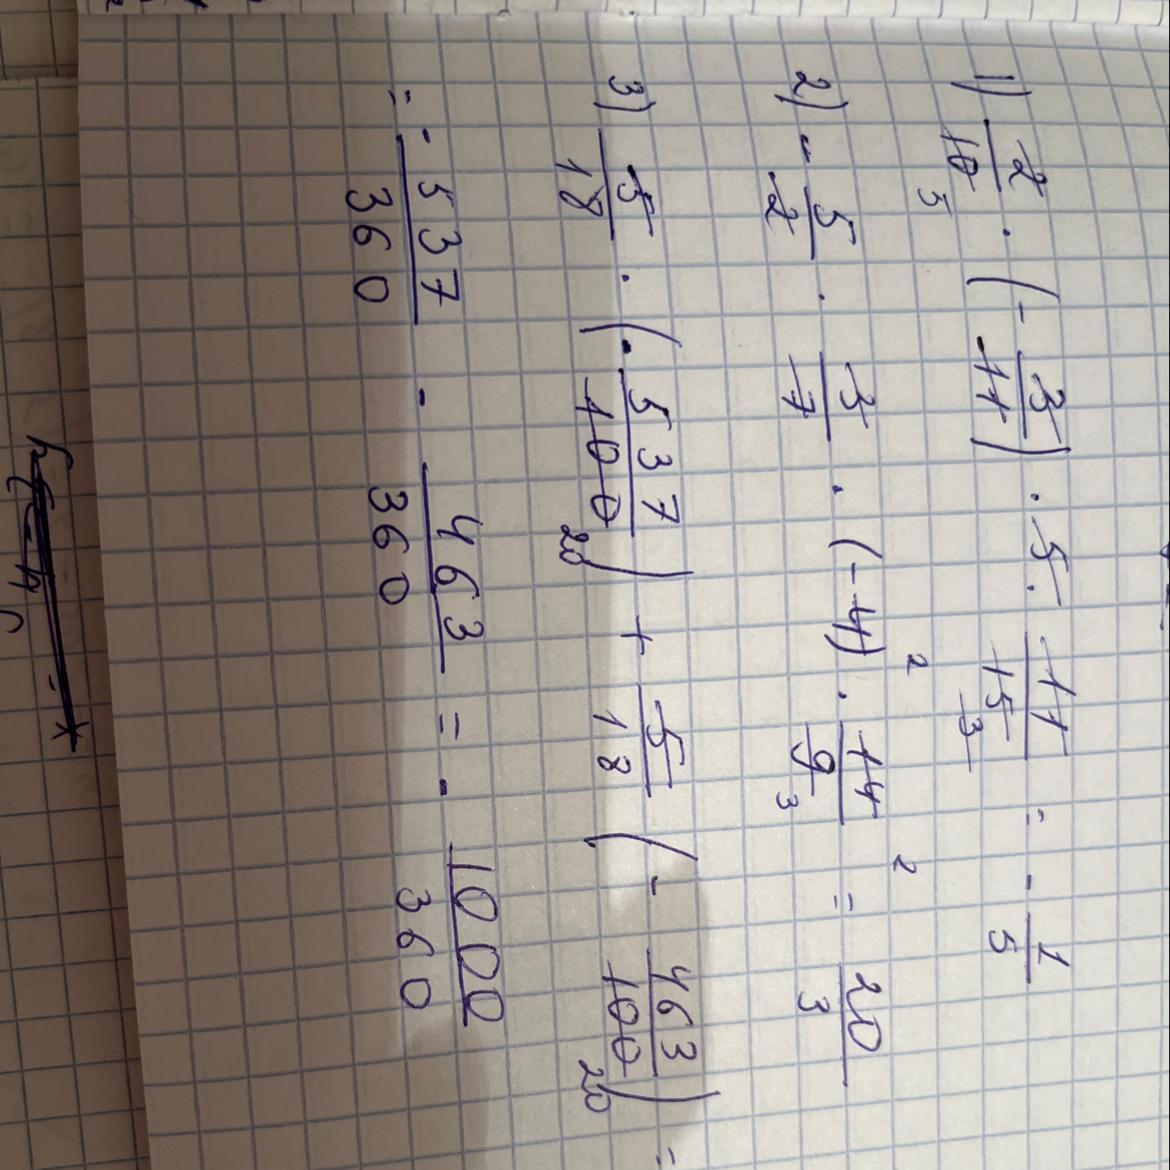 1) 2/10 5 · (- 3/11) · 5 · 11/15 3 = - 1/5
2) - 5/2 · 3/7 · (-4) 2 · 14/9 3 2 = 20/3
3) 5/18 · (- 537/100 20) + 5/18 (- 463/100 20) =
= - 537/360 - 463/360 = - 1000/360